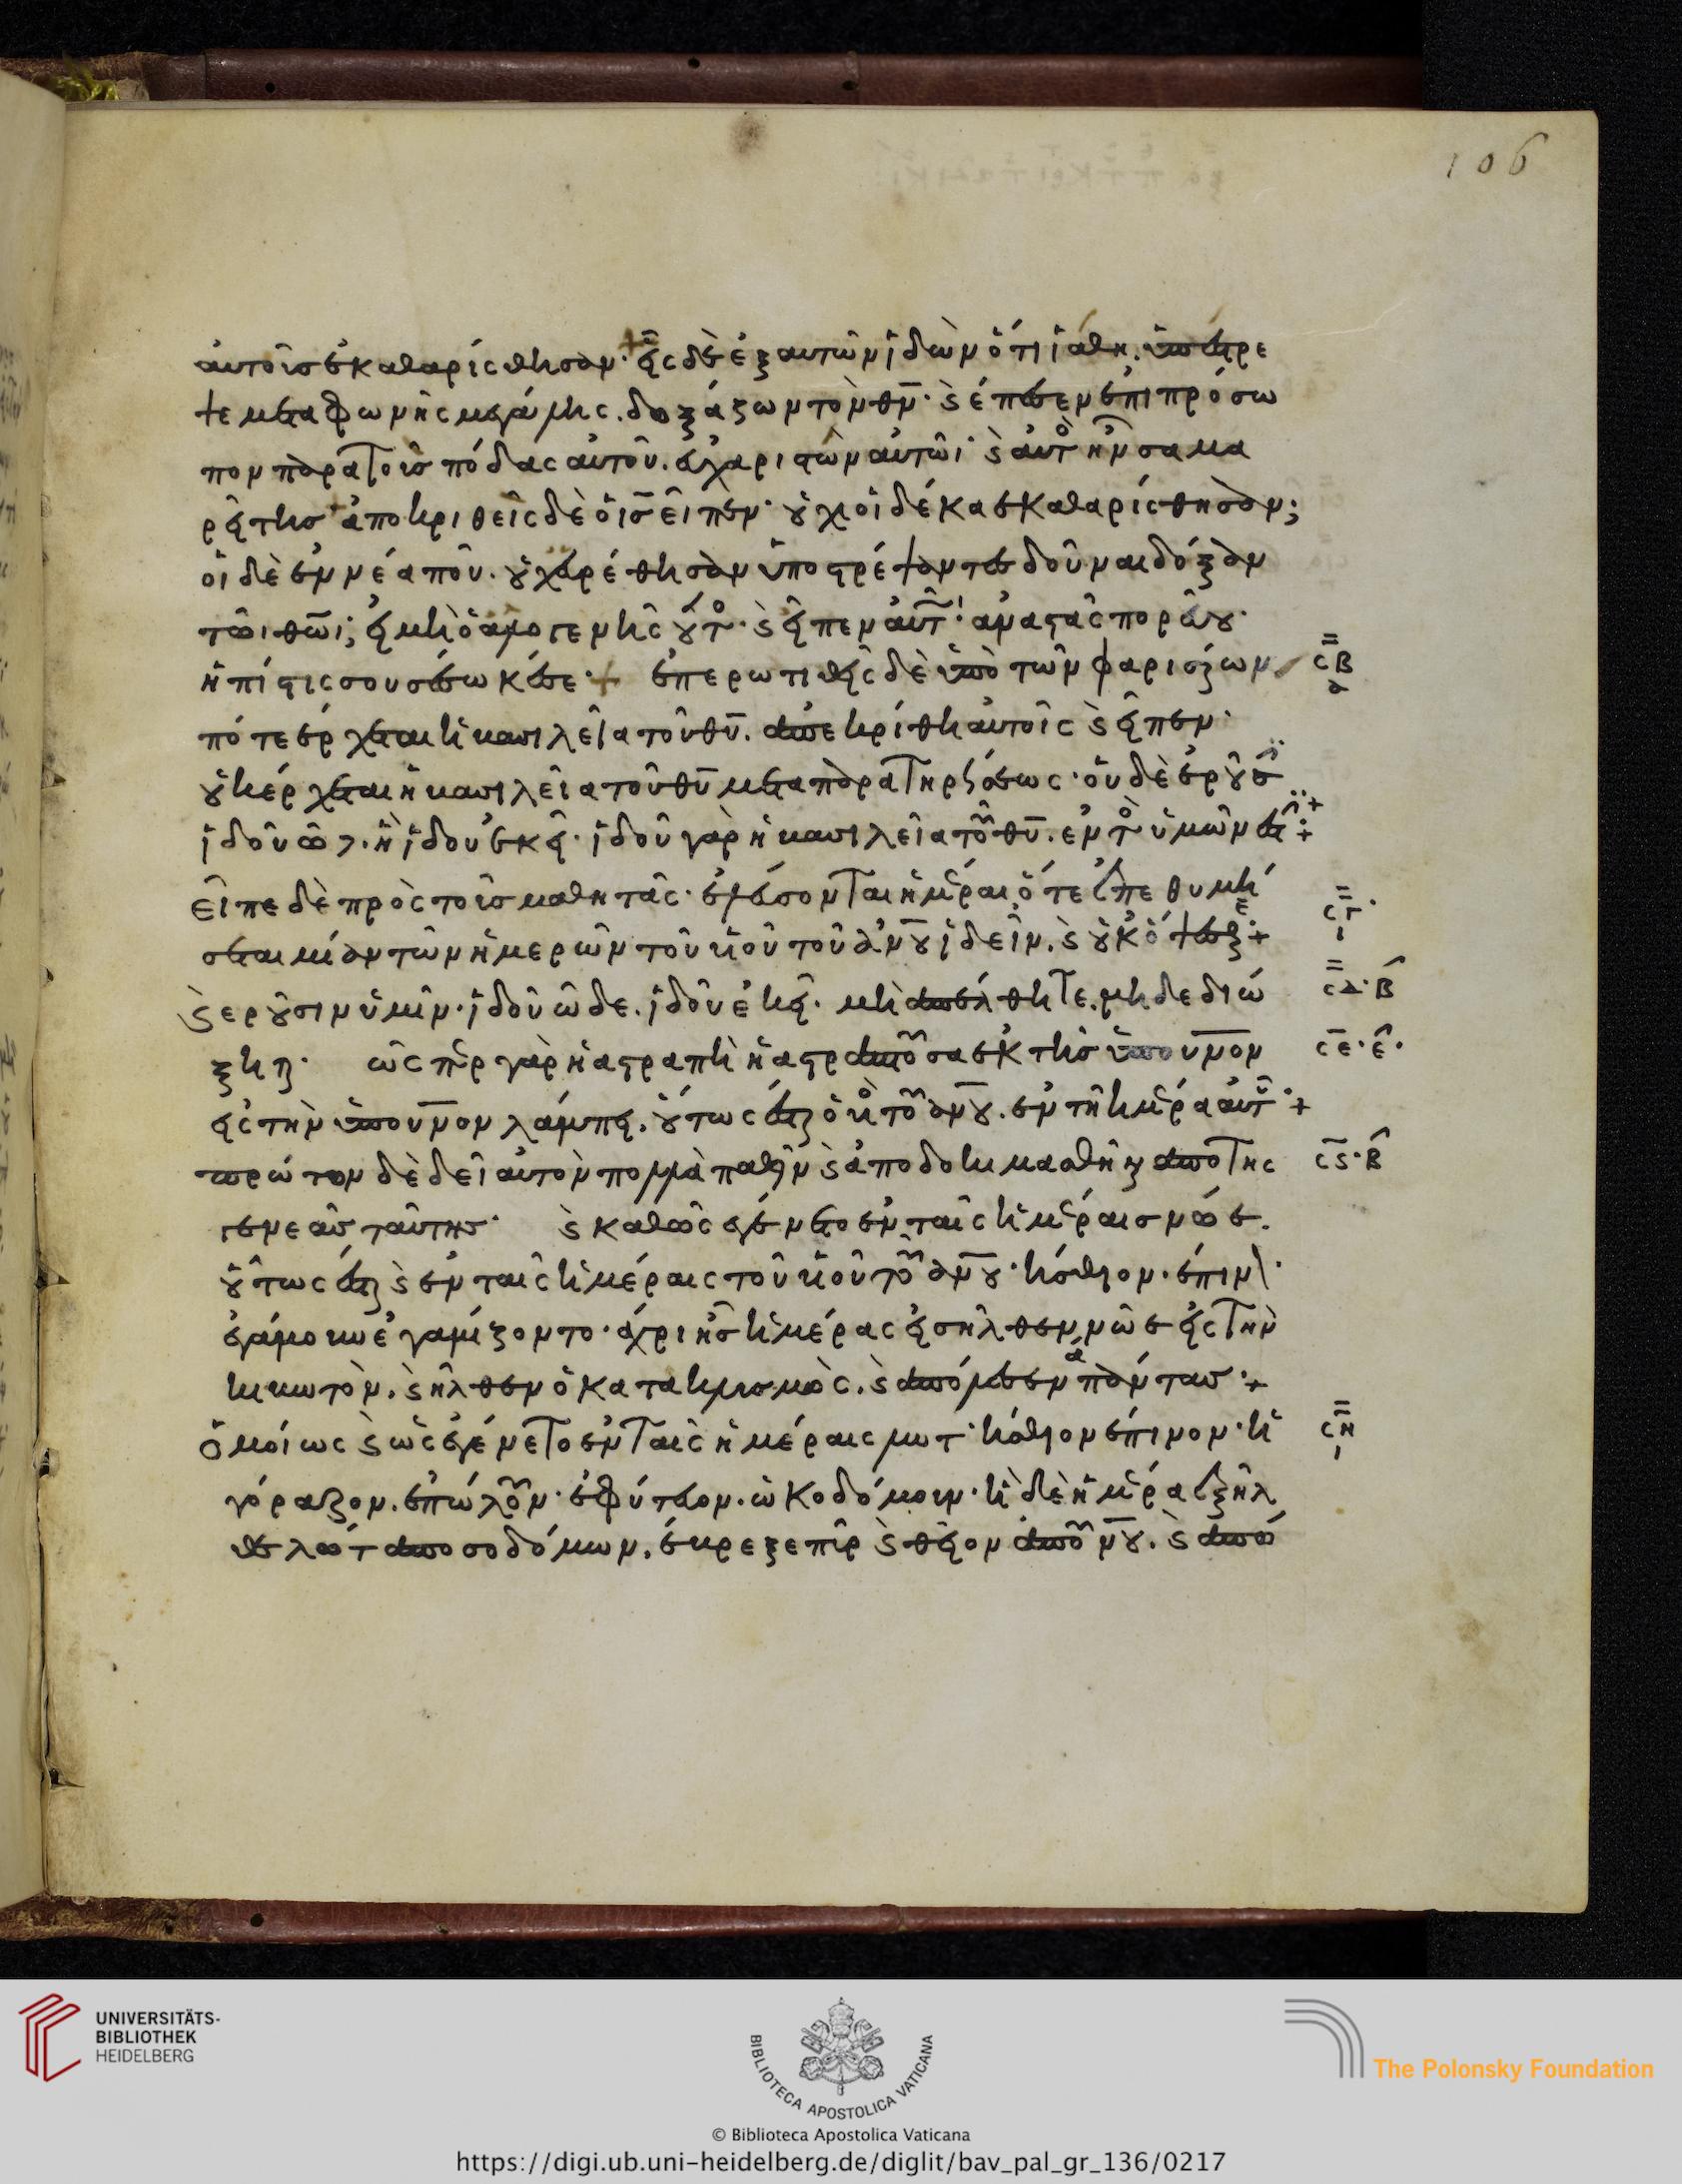 106
αὐτοὺς ἐκαθαρίσθησαν· εἷς δὲ ἐξ αὐτῶν ἰδὼν ὅτι ἰάθη. ὑπέστρε
ψε μετὰ φωνῆς μεγάλης. δοξάζων τὸν θν̅· ϗ ἔπεσεν ἐπι πρόσω
πον παρα τοὺς πόδας αὐτοῦ. εὐχαριστῶν αὐτῶι· ϗ αὐτὸ ἦν σαμα
ρείτης ἀποκριθεὶς δὲ ὁ ισ̅ εἶπεν· οὐχι οἱ δέκα ἐκαθαρίσθησαν;
οἱ δὲ ἐννέα ποῦ. οὐχ εὑρέθησαν ὑποστρέψαντες δοῦναι δόξαν
τῶι θω̅ι; εἰ μὴ ὁ ἀλλογενὴς οὗτο· ϗ εἶπεν αὐτ· ἀναστὰς πορεύου·
ἡ πίστις σου σέσωκέ σε + ἐπερωτιθεὶς δὲ ὑπὸ τῶν φαρισαίων
σ̅β̅
πότε ἔρχεται ἡ βασιλεία τοῦ θυ̅. ἀπεκρίθη αὐτοῖς ϗ εἶπεν·
οὐκ έρχεται ἡ βασιλεῖα τοῦ θυ̅ μετα παρατηρήσεως· οὐδὲ ἐροῦσ
ἰδοῦ ὧδ. ἢ ἰδοὺ ἐκεῖ· ἰδοῦ γὰρ ἡ βασιλεῖα τοῦ θυ̅. εντὸ ὑμῶν ἐστ +
εἶπε δὲ πρὸς τοὺς μαθητὰς· ἐλεύσονται ἡμέραι, ὅτε ἐπεθυμή
σ̅γ̅ ι
σεται μίαν τῶν ἡμερῶν τοῦ υἱοῦ τοῦ αν̅ου ἰδεῖν. ϗ οὐκ ὄψεσθε +
ϗ ερουσιν ὑμῖν· ἰδοῦ ὧδε. ἰδοῦ ἐκεῖ. μὴ ἀπέλθητε. μηδε διώ
σ̅δ̅ β
ξητε· ὥσπερ γὰρ ἡ αστραπὴ ἡ αστραπτουσα ἐκ τῆς ὑπ ουν̅ον
σ̅ε̅ ε
εἰς τὴν ὑπ ουν̅ον λάμπει. οὕτως ἔσται ὁ υἱὸ τοῦ αν̅ου. ἐν τῆ ἡμέρα αὐτ +
πρώτον δὲ δεῖ αὐτὸν πολλὰ παθεῖν ϗ ἀποδοκιμασθῆναι απο της
σ̅ϛ̅ β
γενεᾶς ταύτης· ϗ καθὼς ἐγένετο ἐν ταῖς ἡμέραις νῶε.
οὕτως ἔσται ϗ ἐν ταῖς ἡμέραις τοῦ υἱοῦ τοῦ αν̅ου· ἤσθιον. ἔπιν·
ἐγάμουν ἐγαμίζοντο· ἄχρι ἧς ἡμέρας εἰσῆλθεν νῶε εἰς τὴν
κιβωτὸν. ϗ ἦλθεν ὁ κατακλυσμὸς. ϗ ἀπόλεσεν ἅπαντας +
ὁμοίως ϗ ὡς ἐγένετο ἐν ταῖς ἡμέραις λωτ· ἤσθιον ἔπινον· ἠ
σ̅η̅ ι
γόραζον. ἐπώλουν. ἐφύτευον. ὠκοδόμουν· ἧ δὲ ἡμέρα ἐξῆλ
θε λὼτ απο σοδόμων. ἔβρεξε πῦρ ϗ θεῖον ἀπ οὐν̅ου. ϗ ἀπώ
UNIVERSITÄTS-
BIBLIOTHEK
HEIDELBERG
BIBLIOTECA APOSTOLICA VATICANA
The Polonsky Foundation
© Biblioteca Apostolica Vaticana
https://digi.ub.uni-heidelberg.de/diglit/bav_pal_gr_136/0217